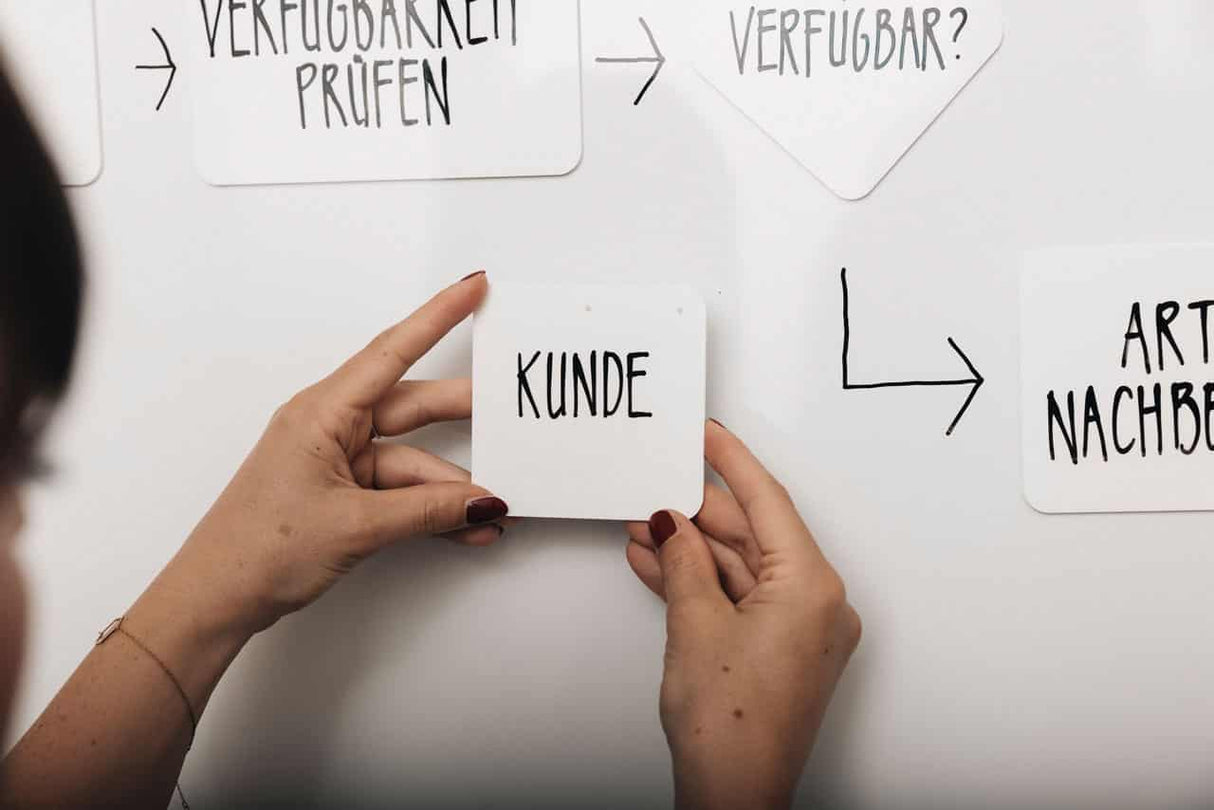 VERFÜGBARKEIT
PRÜFEN
VERFÜGBAR?
KUNDE
ART
NACHBE